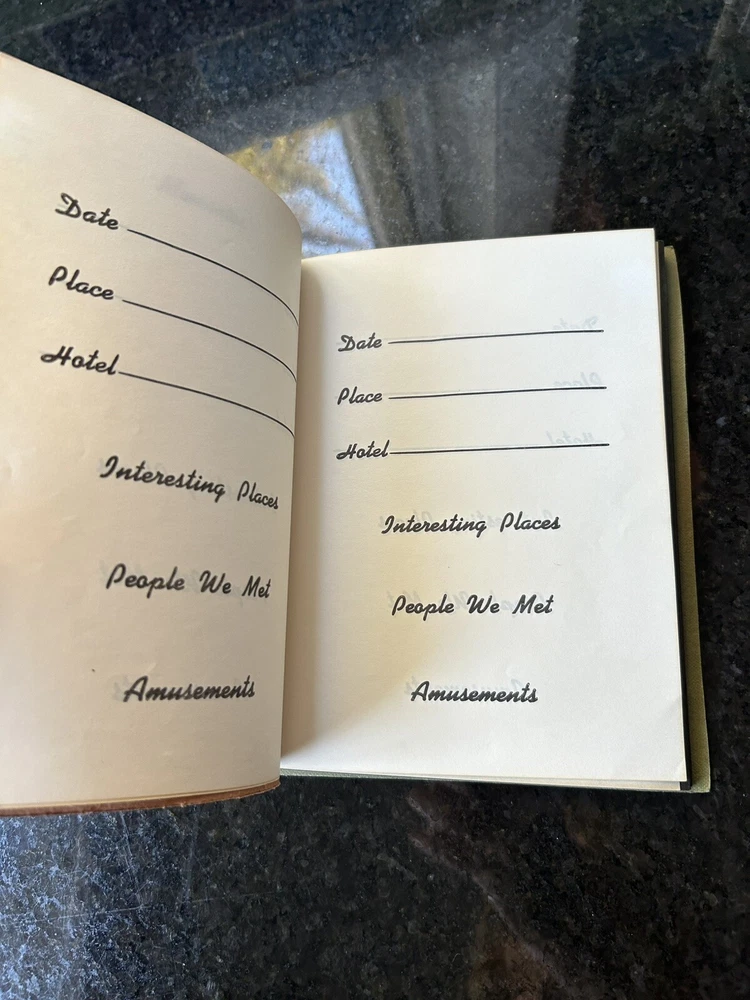 Date
Place
Hotel
Interesting Places
People We Met
Amusements
Date
Place
Hotel
Interesting Places
People We Met
Amusements